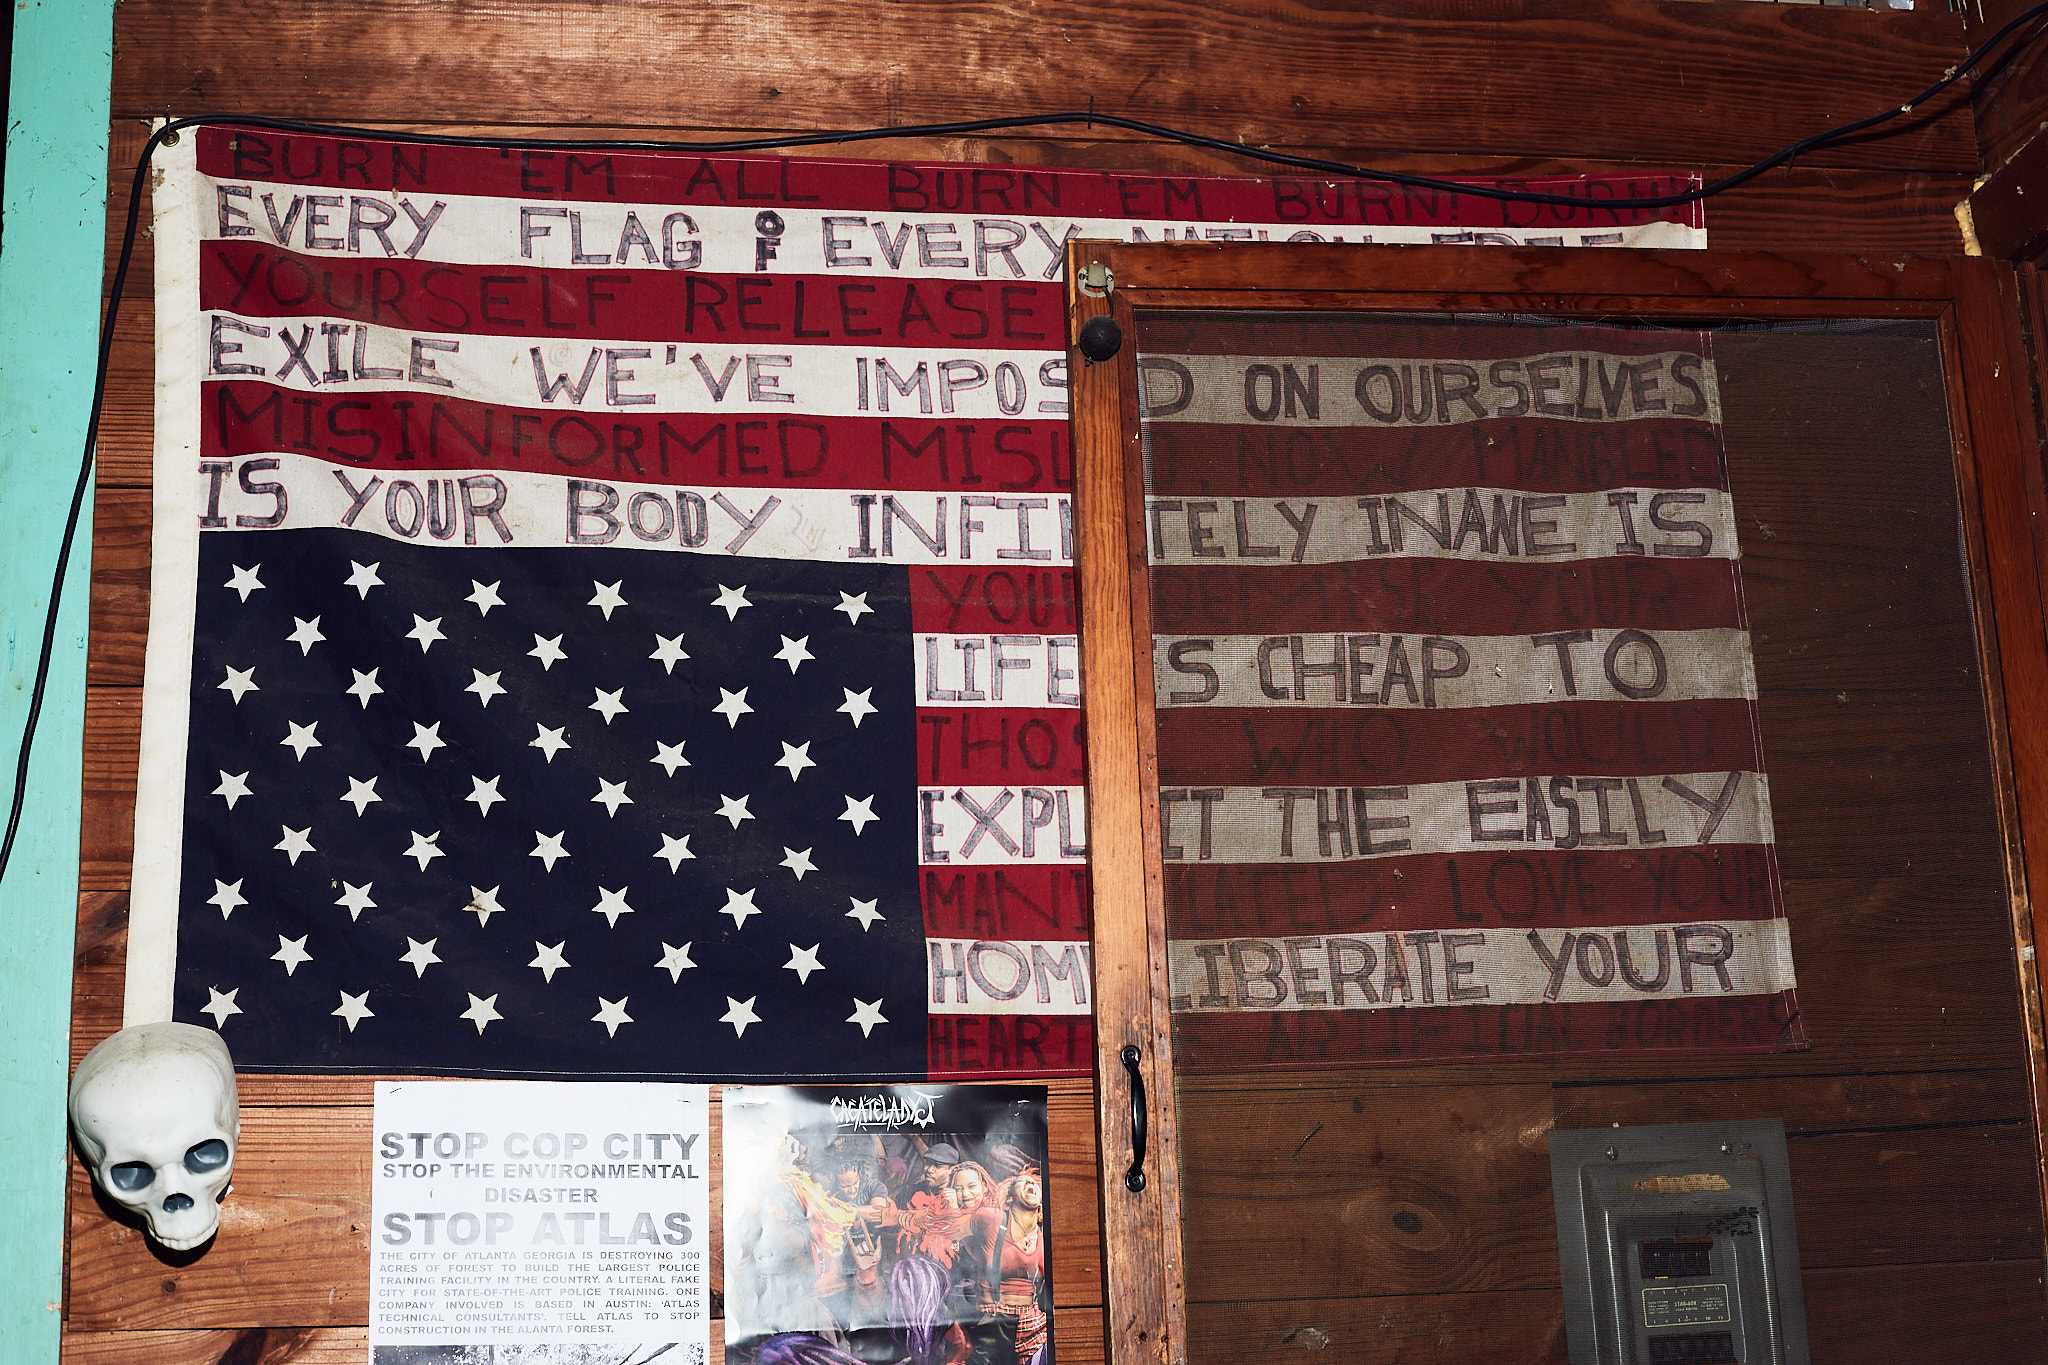 BURN 'EM ALL BURN 'EM BURN! BURN!
EVERY FLAG OF EVERY NATION FREE
YOURSELF RELEASE
EXILE WE'VE IMPOS D ON OURSELVES
MISINFORMED MISL D. NOW MANGLED
IS YOUR BODY INFINI TELY INANE IS
YOUR YOUR
LIFE IS CHEAP TO
THOS WHO WOULD
EXPL IT THE EASILY
MANI LATED LOVE YOUR
HOM LIBERATE YOUR
HEART ARTIFICIAL BORDERS
STOP COP CITY
STOP THE ENVIRONMENTAL
DISASTER
STOP ATLAS
THE CITY OF ATLANTA GEORGIA IS DESTROYING 300
ACRES OF FOREST TO BUILD THE LARGEST POLICE
TRAINING FACILITY IN THE COUNTRY. A LITERAL FAKE
CITY FOR STATE-OF-THE-ART POLICE TRAINING. ONE
COMPANY INVOLVED IS BASED IN AUSTIN: 'ATLAS
TECHNICAL CONSULTANTS'. TELL ATLAS TO STOP
CONSTRUCTION IN THE ALANTA FOREST.
CREATELADYJ